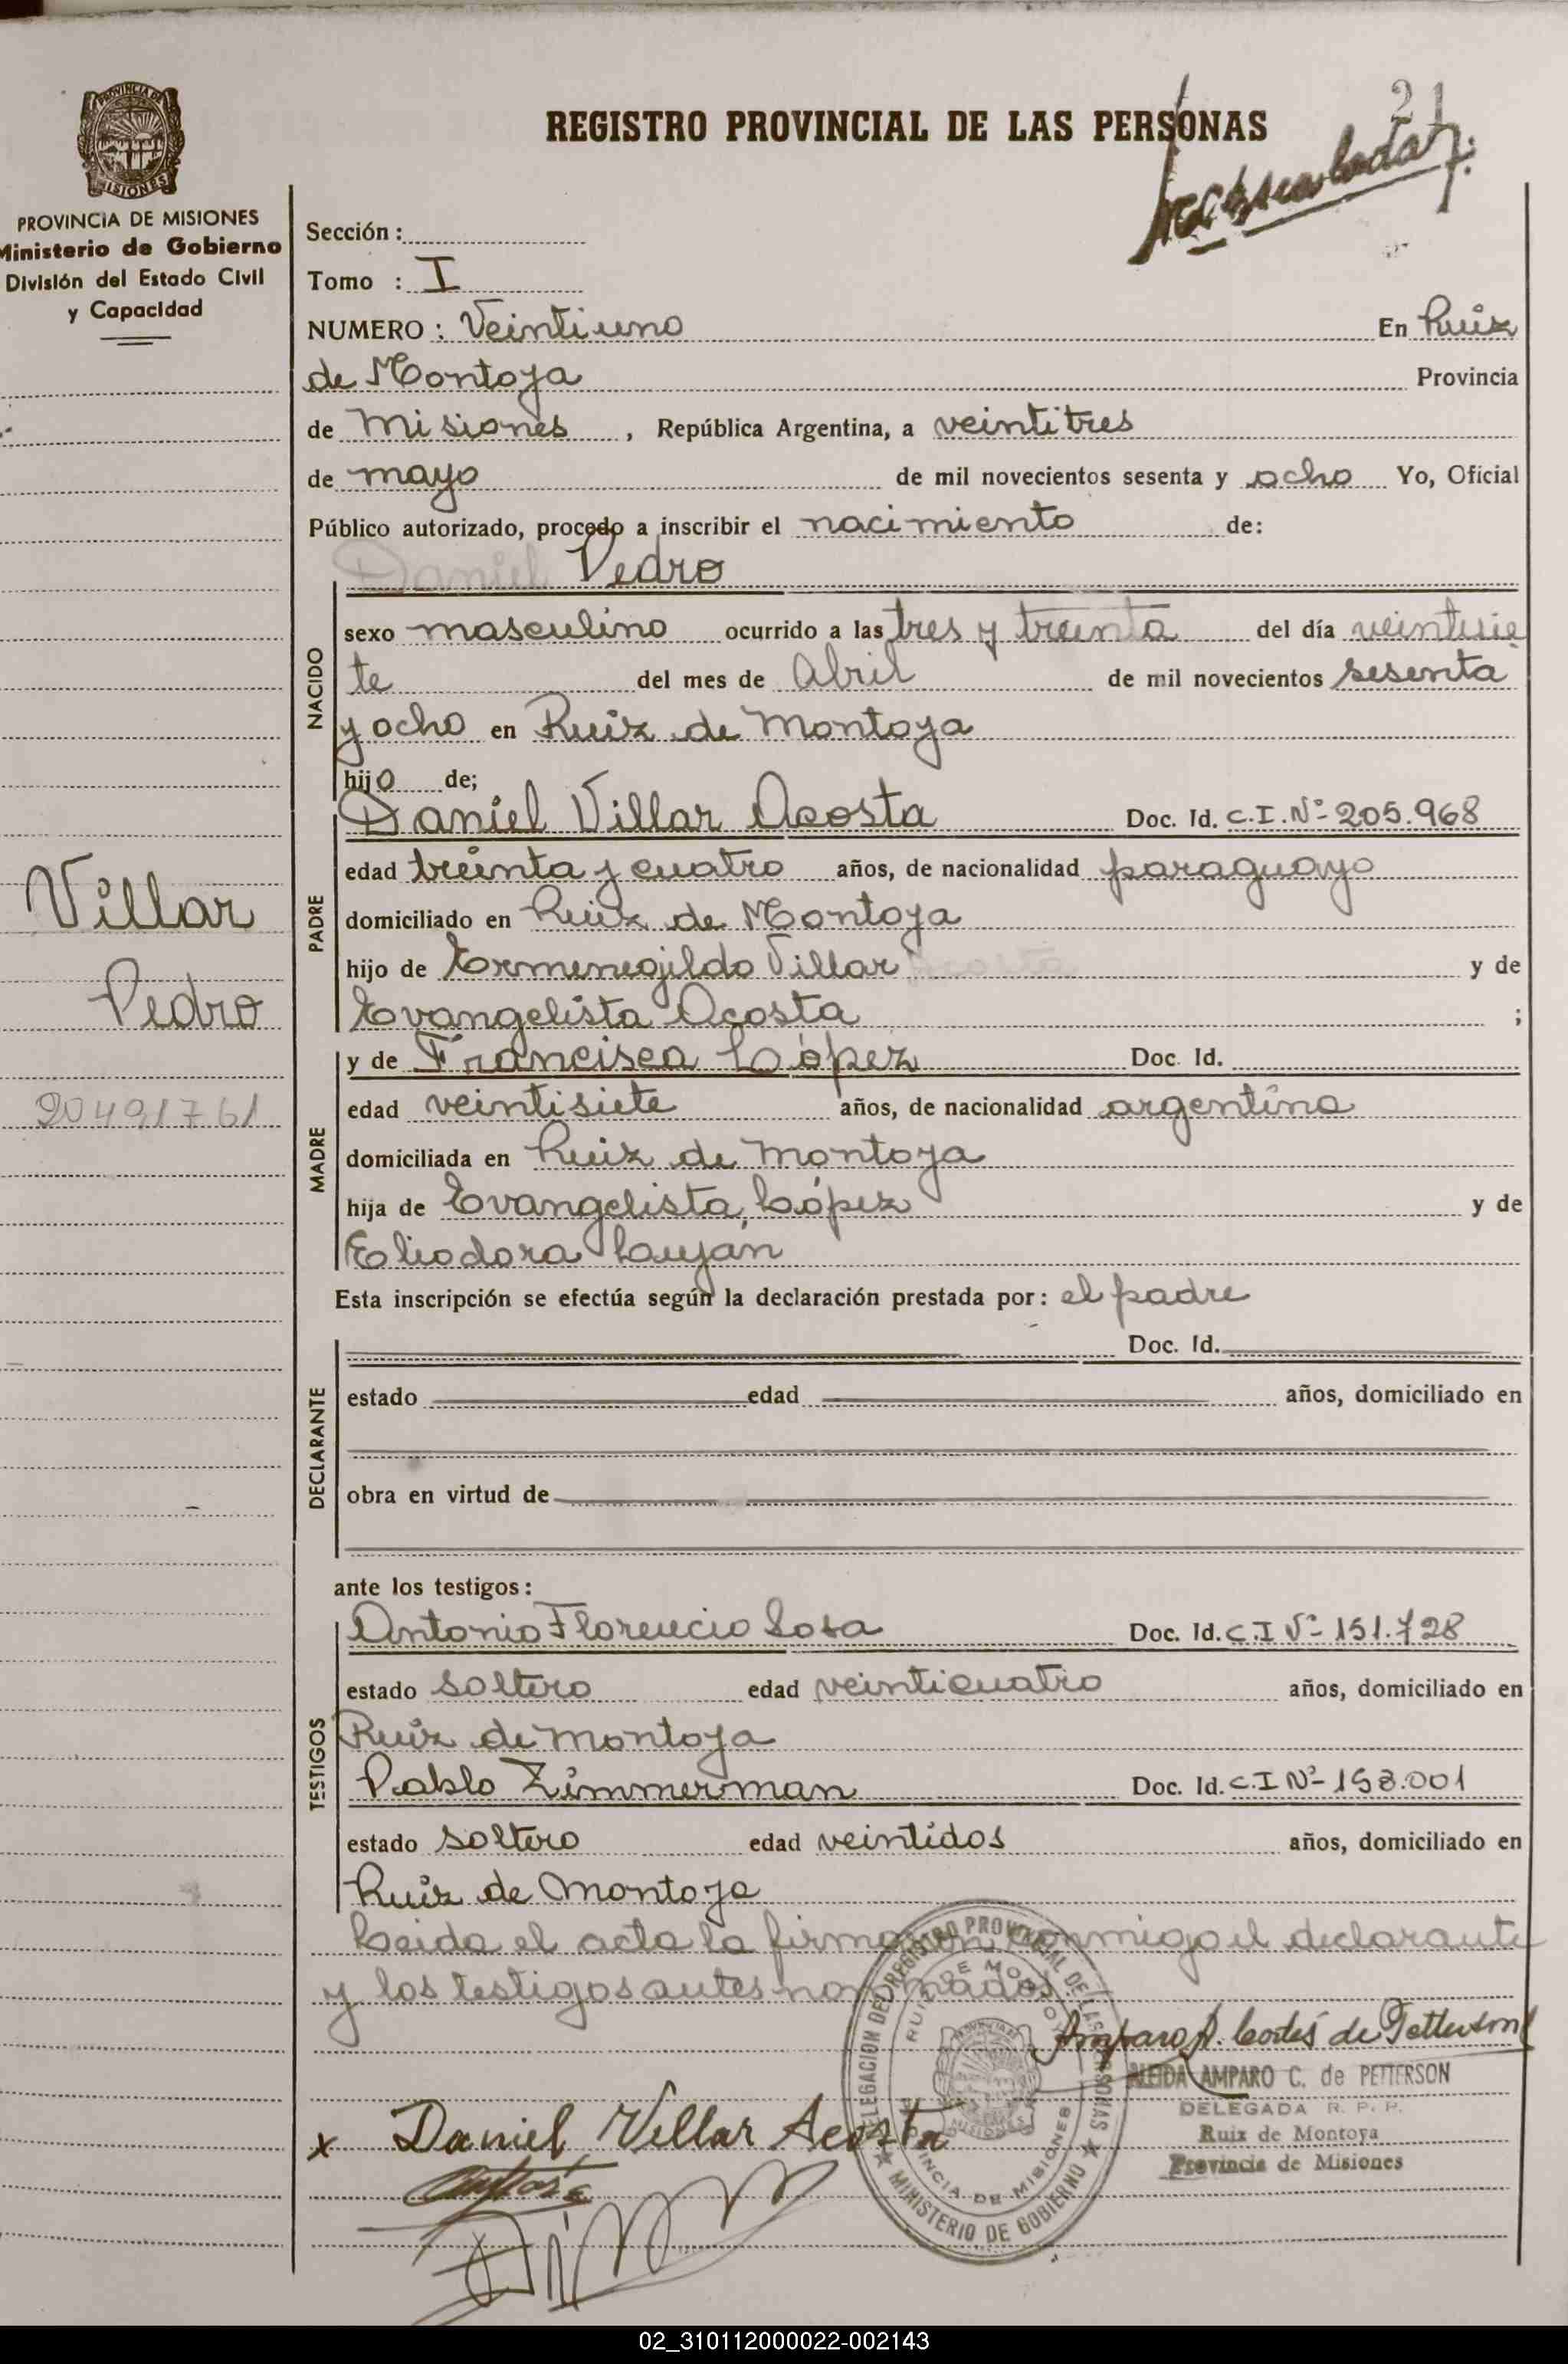 21
REGISTRO PROVINCIAL DE LAS PERSONAS
PROVINCIA DE MISIONES
Ministerio de Gobierno
División del Estado Civil
y Capacidad
Sección :
Tomo : I
NUMERO : Veintiuno En Ruiz
de Montoya Provincia
de Misiones , República Argentina, a veintitres
de mayo de mil novecientos sesenta y ocho Yo, Oficial
Público autorizado, procedo a inscribir el nacimiento de:
Daniel Pedro
NACIDO
sexo masculino ocurrido a las tres y treinta del día veintisie
te del mes de Abril de mil novecientos sesenta
y ocho en Ruiz de Montoya
hijo de;
PADRE
Daniel Villar Acosta Doc. Id. C.I. Nº 205.968
edad treinta y cuatro años, de nacionalidad paraguayo
domiciliado en Ruiz de Montoya
hijo de Ermenegildo Villar Acosta y de
Evangelista Acosta ;
Villar
Pedro
20491761
MADRE
y de Francisca López Doc. Id.
edad veintisiete años, de nacionalidad argentina
domiciliada en Ruiz de Montoya
hija de Evangelista López y de
Eliodora Luján
Esta inscripción se efectúa según la declaración prestada por: el padre
DECLARANTE
Doc. Id.
estado edad años, domiciliado en
obra en virtud de
ante los testigos:
TESTIGOS
Antonio Florencio Sosa Doc. Id. C.I Nº 151.728
estado soltero edad veinticuatro años, domiciliado en
Ruiz de Montoya
Pablo Zimmerman Doc. Id. C.I Nº 153.001
estado soltero edad veintidos años, domiciliado en
Ruiz de Montoya
Leida el acta la firmaron conmigo el declarante
y los testigos antes nombrados.
DELEGACION DEL REGISTRO PROVINCIAL DE LAS PERSONAS
RUIZ DE MONTOYA
PROVINCIA DE MISIONES
MINISTERIO DE GOBIERNO
Amparo A. Cortés de Petterson
ALEIDA AMPARO C. de PETTERSON
DELEGADA R. P. P.
Ruiz de Montoya
Provincia de Misiones
x Daniel Villar Acosta
02_310112000022-002143